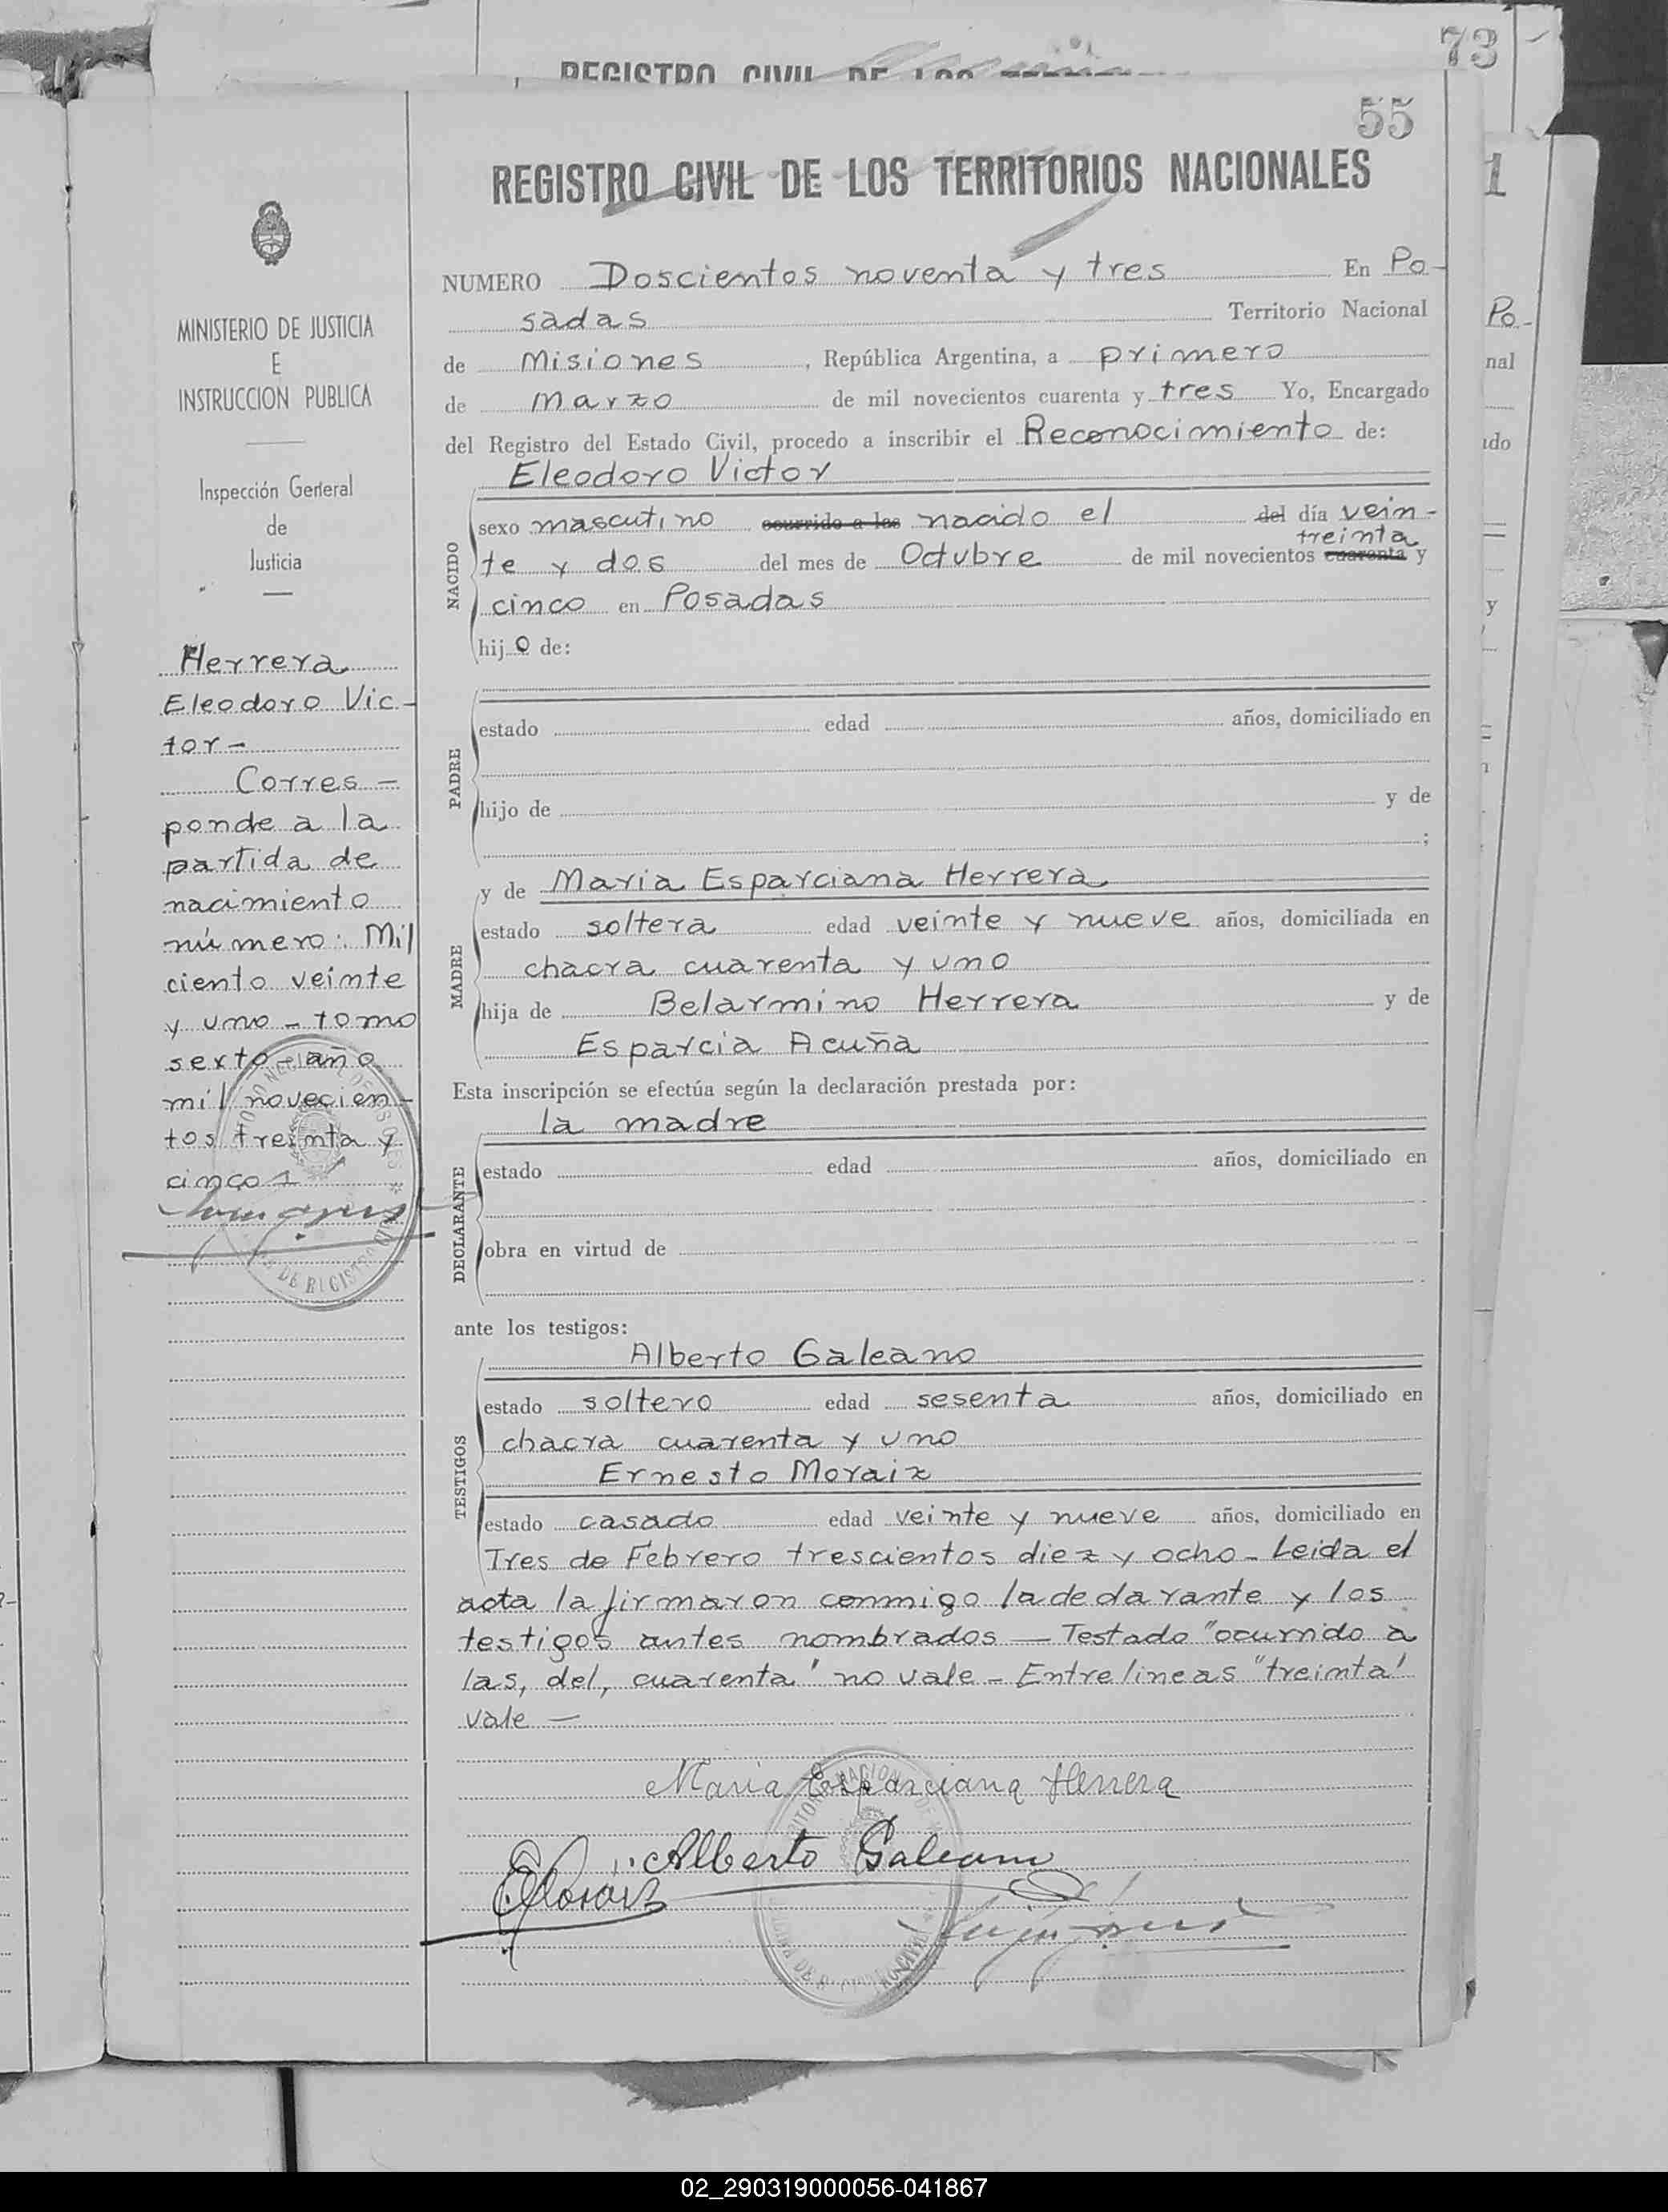 73
55
REGISTRO CIVIL DE LOS TERRITORIOS NACIONALES
NUMERO Doscientos noventa y tres En Po-
sadas Territorio Nacional
de Misiones, República Argentina, a primero
de marzo de mil novecientos cuarenta y tres Yo, Encargado
del Registro del Estado Civil, procedo a inscribir el Reconocimiento de:
Eleodoro Victor
NACIDO
sexo masculino ocurrido a las nacido el del día vein-
treinta
te y dos del mes de Octubre de mil novecientos cuarenta y
cinco en Posadas
hijo de:
PADRE
estado edad años, domiciliado en
hijo de y de
;
MADRE
y de Maria Esparciana Herrera
estado soltera edad veinte y nueve años, domiciliada en
chacra cuarenta y uno
hija de Belarmino Herrera y de
Esparcia Acuña
Esta inscripción se efectúa según la declaración prestada por:
la madre
DECLARANTE
estado edad años, domiciliado en
obra en virtud de
ante los testigos:
TESTIGOS
Alberto Galeano
estado soltero edad sesenta años, domiciliado en
chacra cuarenta y uno
Ernesto Moraiz
estado casado edad veinte y nueve años, domiciliado en
Tres de Febrero trescientos diez y ocho - Leida el
acta la firmaron conmigo la declarante y los
testigos antes nombrados — Testado "ocurrido a
las, del, cuarenta" no vale - Entrelineas "treinta"
vale —
Maria Esparciana Herrera
Alberto Galeano
EMoraiz
MINISTERIO DE JUSTICIA
E
INSTRUCCION PUBLICA
Inspección General
de
Justicia
Herrera
Eleodoro Vic-
tor -
Corres-
ponde a la
partida de
nacimiento
número: Mil
ciento veinte
y uno - tomo
sexto - año
mil novecien-
tos treinta y
cinco
1
Po-
nal
y
02_290319000056-041867